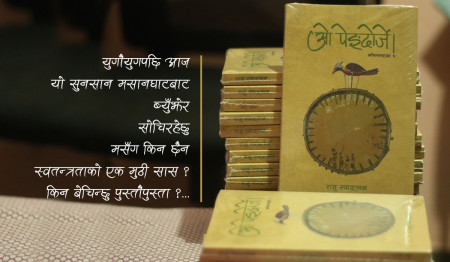 युगौयुगपछि आज
यो सुनसान मसानघाटबाट
ब्यूँझेर
सोचिरहेछु
मसँग किन छैन
स्वतन्त्रताको एक मुठी सास ?
किन बेचिन्छु पुस्तौपुस्ता ?...
ओ पेङ्दोर्जे!
राजु स्याङ्तान